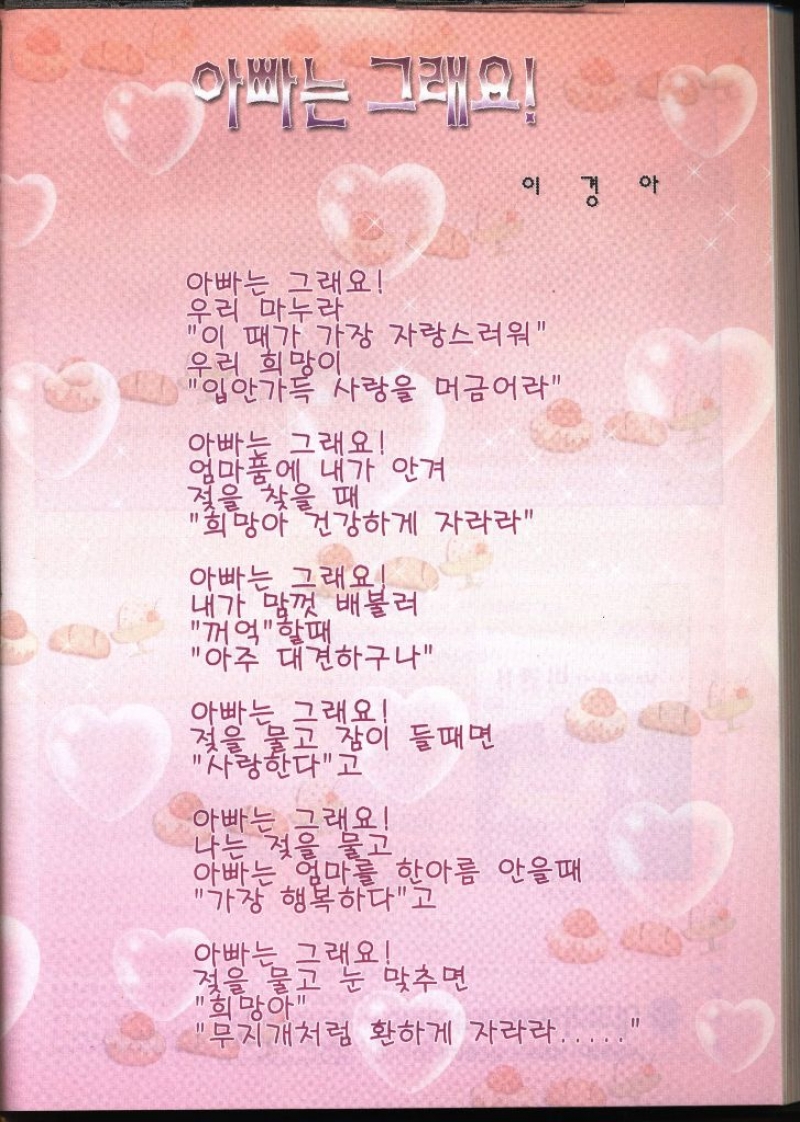 아빠는 그래요!
이 경 아
아빠는 그래요!
우리 마누라
"이 때가 가장 자랑스러워"
우리 희망이
"입안가득 사랑을 머금어라"
아빠는 그래요!
엄마품에 내가 안겨
젖을 찾을 때
"희망아 건강하게 자라라"
아빠는 그래요!
내가 맘껏 배불러
"꺼억"할때
"아주 대견하구나"
아빠는 그래요!
젖을 물고 잠이 들때면
"사랑한다"고
아빠는 그래요!
나는 젖을 물고
아빠는 엄마를 한아름 안을때
"가장 행복하다"고
아빠는 그래요!
젖을 물고 눈 맞추면
"희망아"
"무지개처럼 환하게 자라라....."